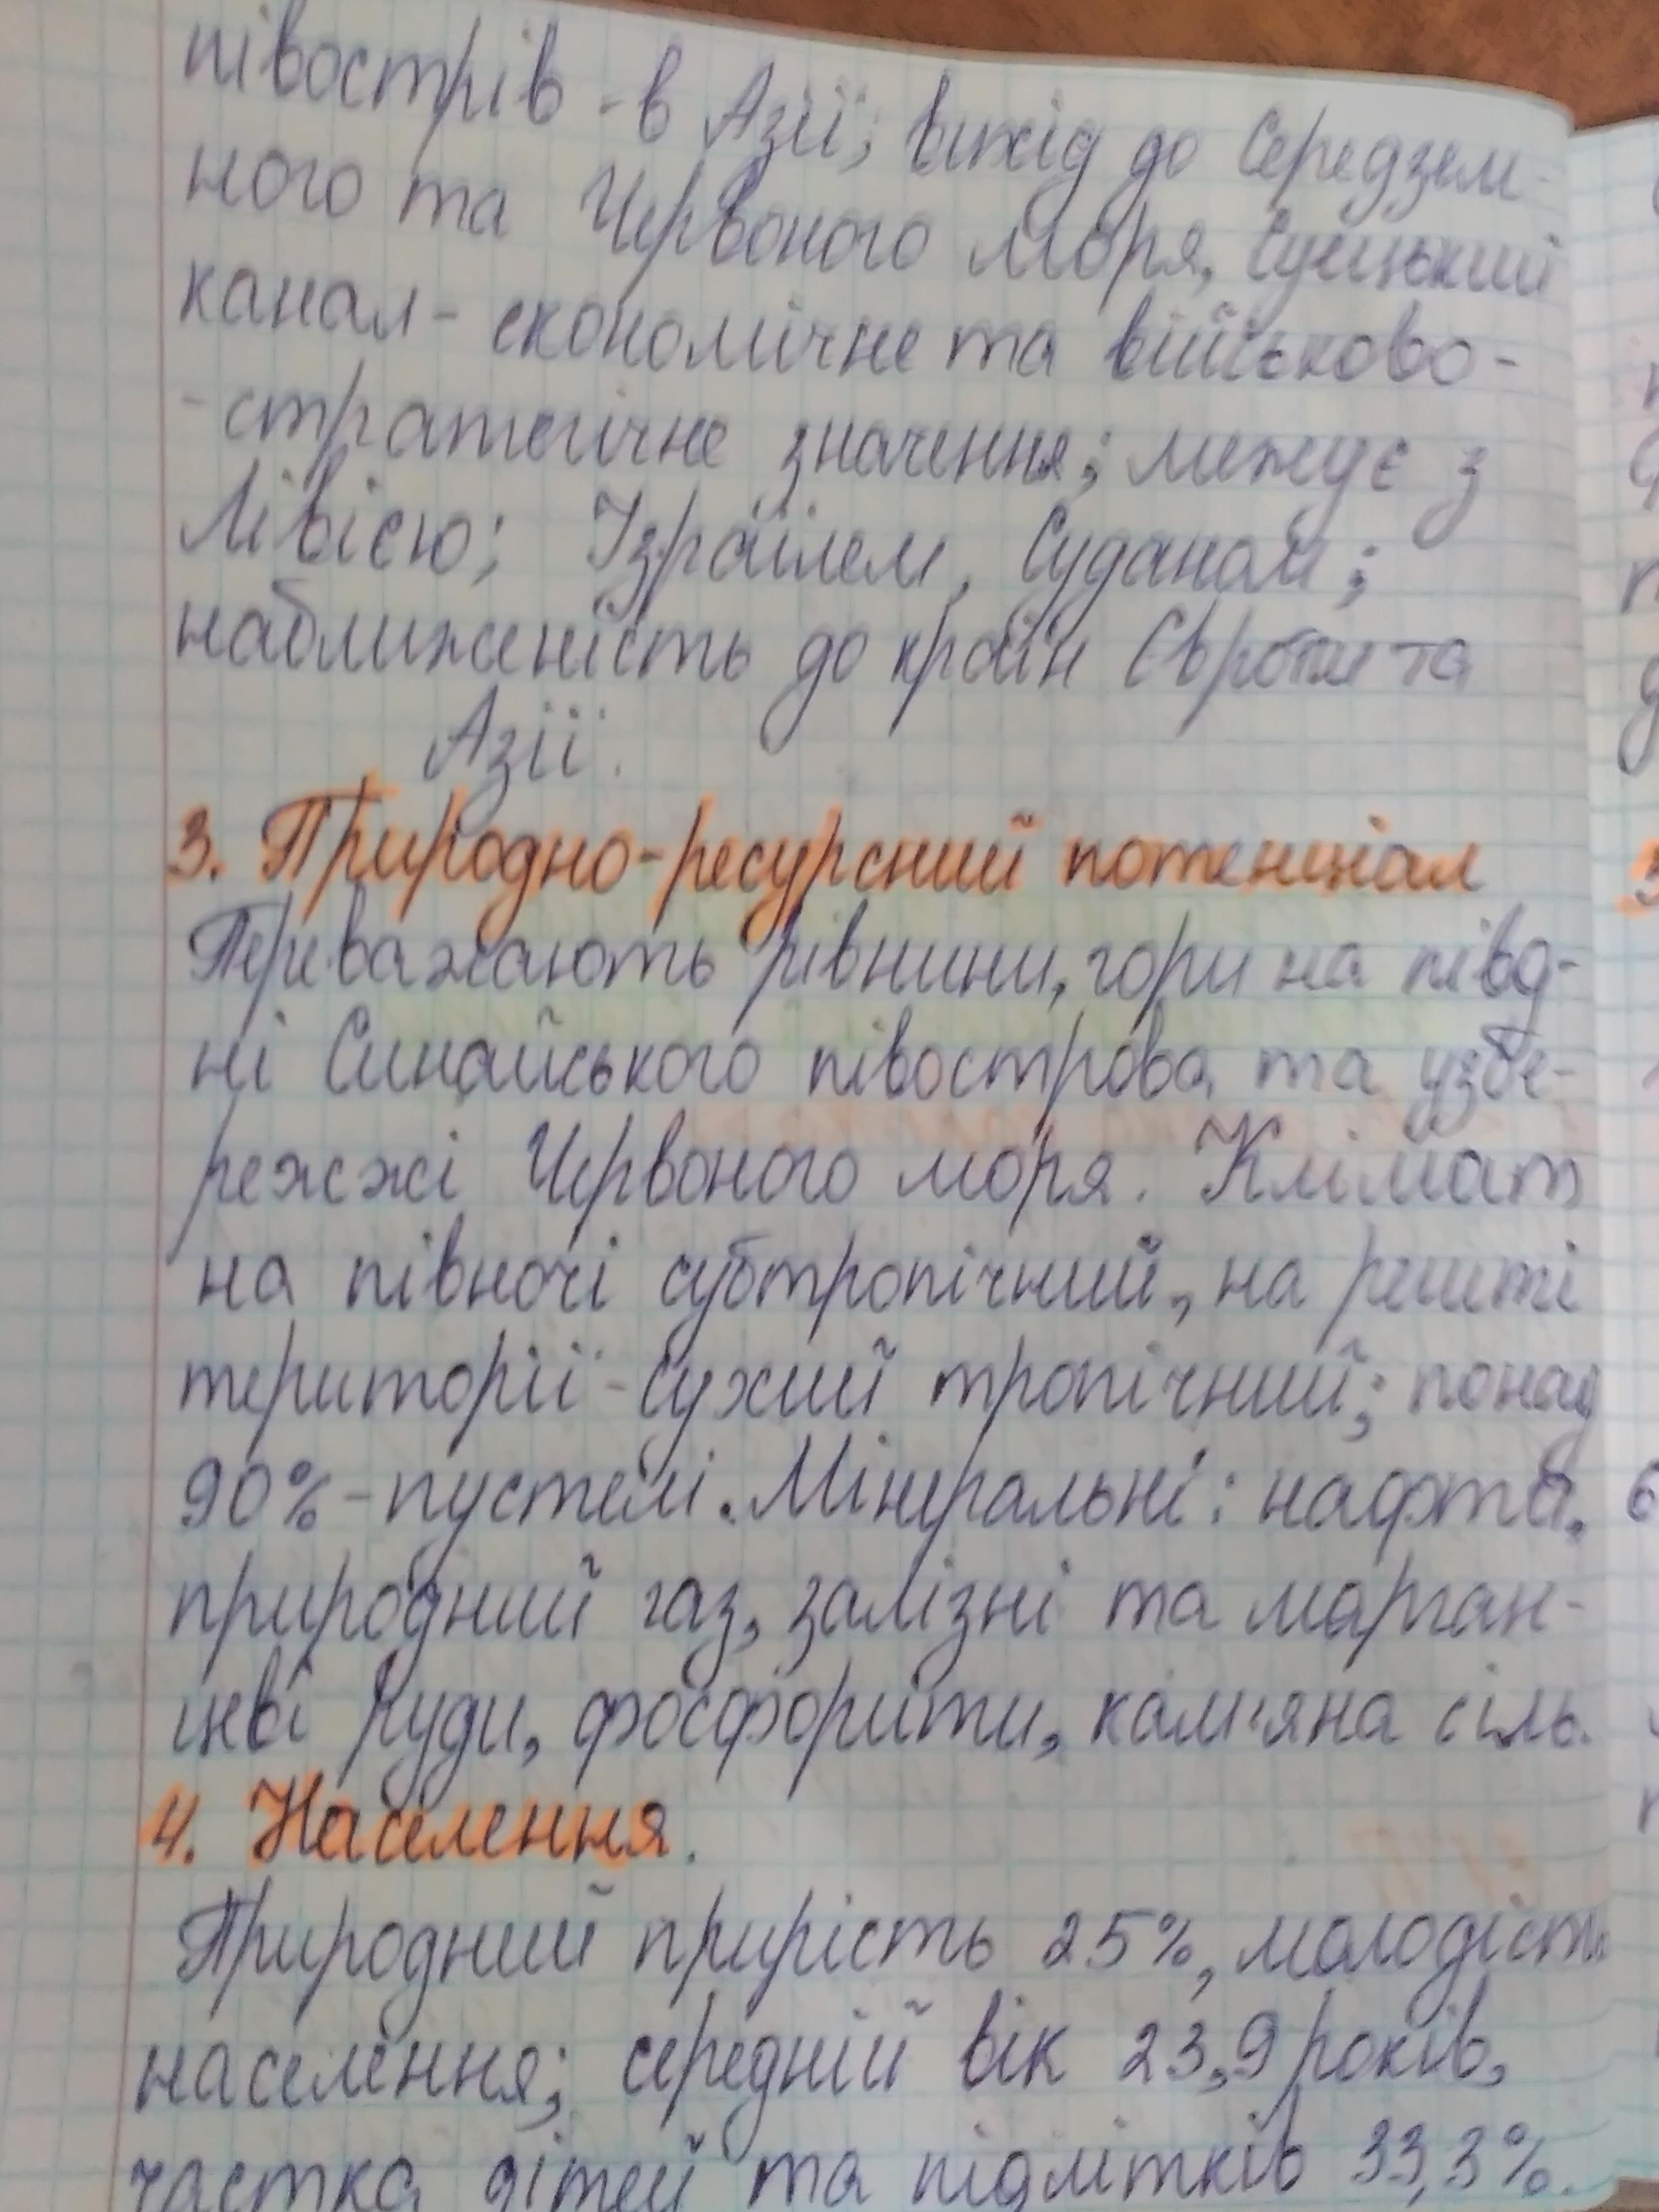 півострів - в Азії; вихід до Середзем-
ного та Червоного моря, Суецький
канал - економічне та військово-
-стратегічне значення; межує з
Лівією; Ізраїлем, Суданом;
наближеність до країн Європи та
Азії.
3. Природно-ресурсний потенціал
Переважають рівнини, гори на півд-
ні Синайського півострова та узбе-
режжі Червоного моря. Клімат
на півночі субтропічний, на решті
території - сухий тропічний; понад
90% - пустелі. Мінеральні: нафта,
природний газ, залізні та марган-
цеві руди, фосфорити, кам'яна сіль.
4. Населення.
Природний приріст 25%, молодість
населення; середній вік 23,9 років,
частка дітей та підлітків 33,3%.